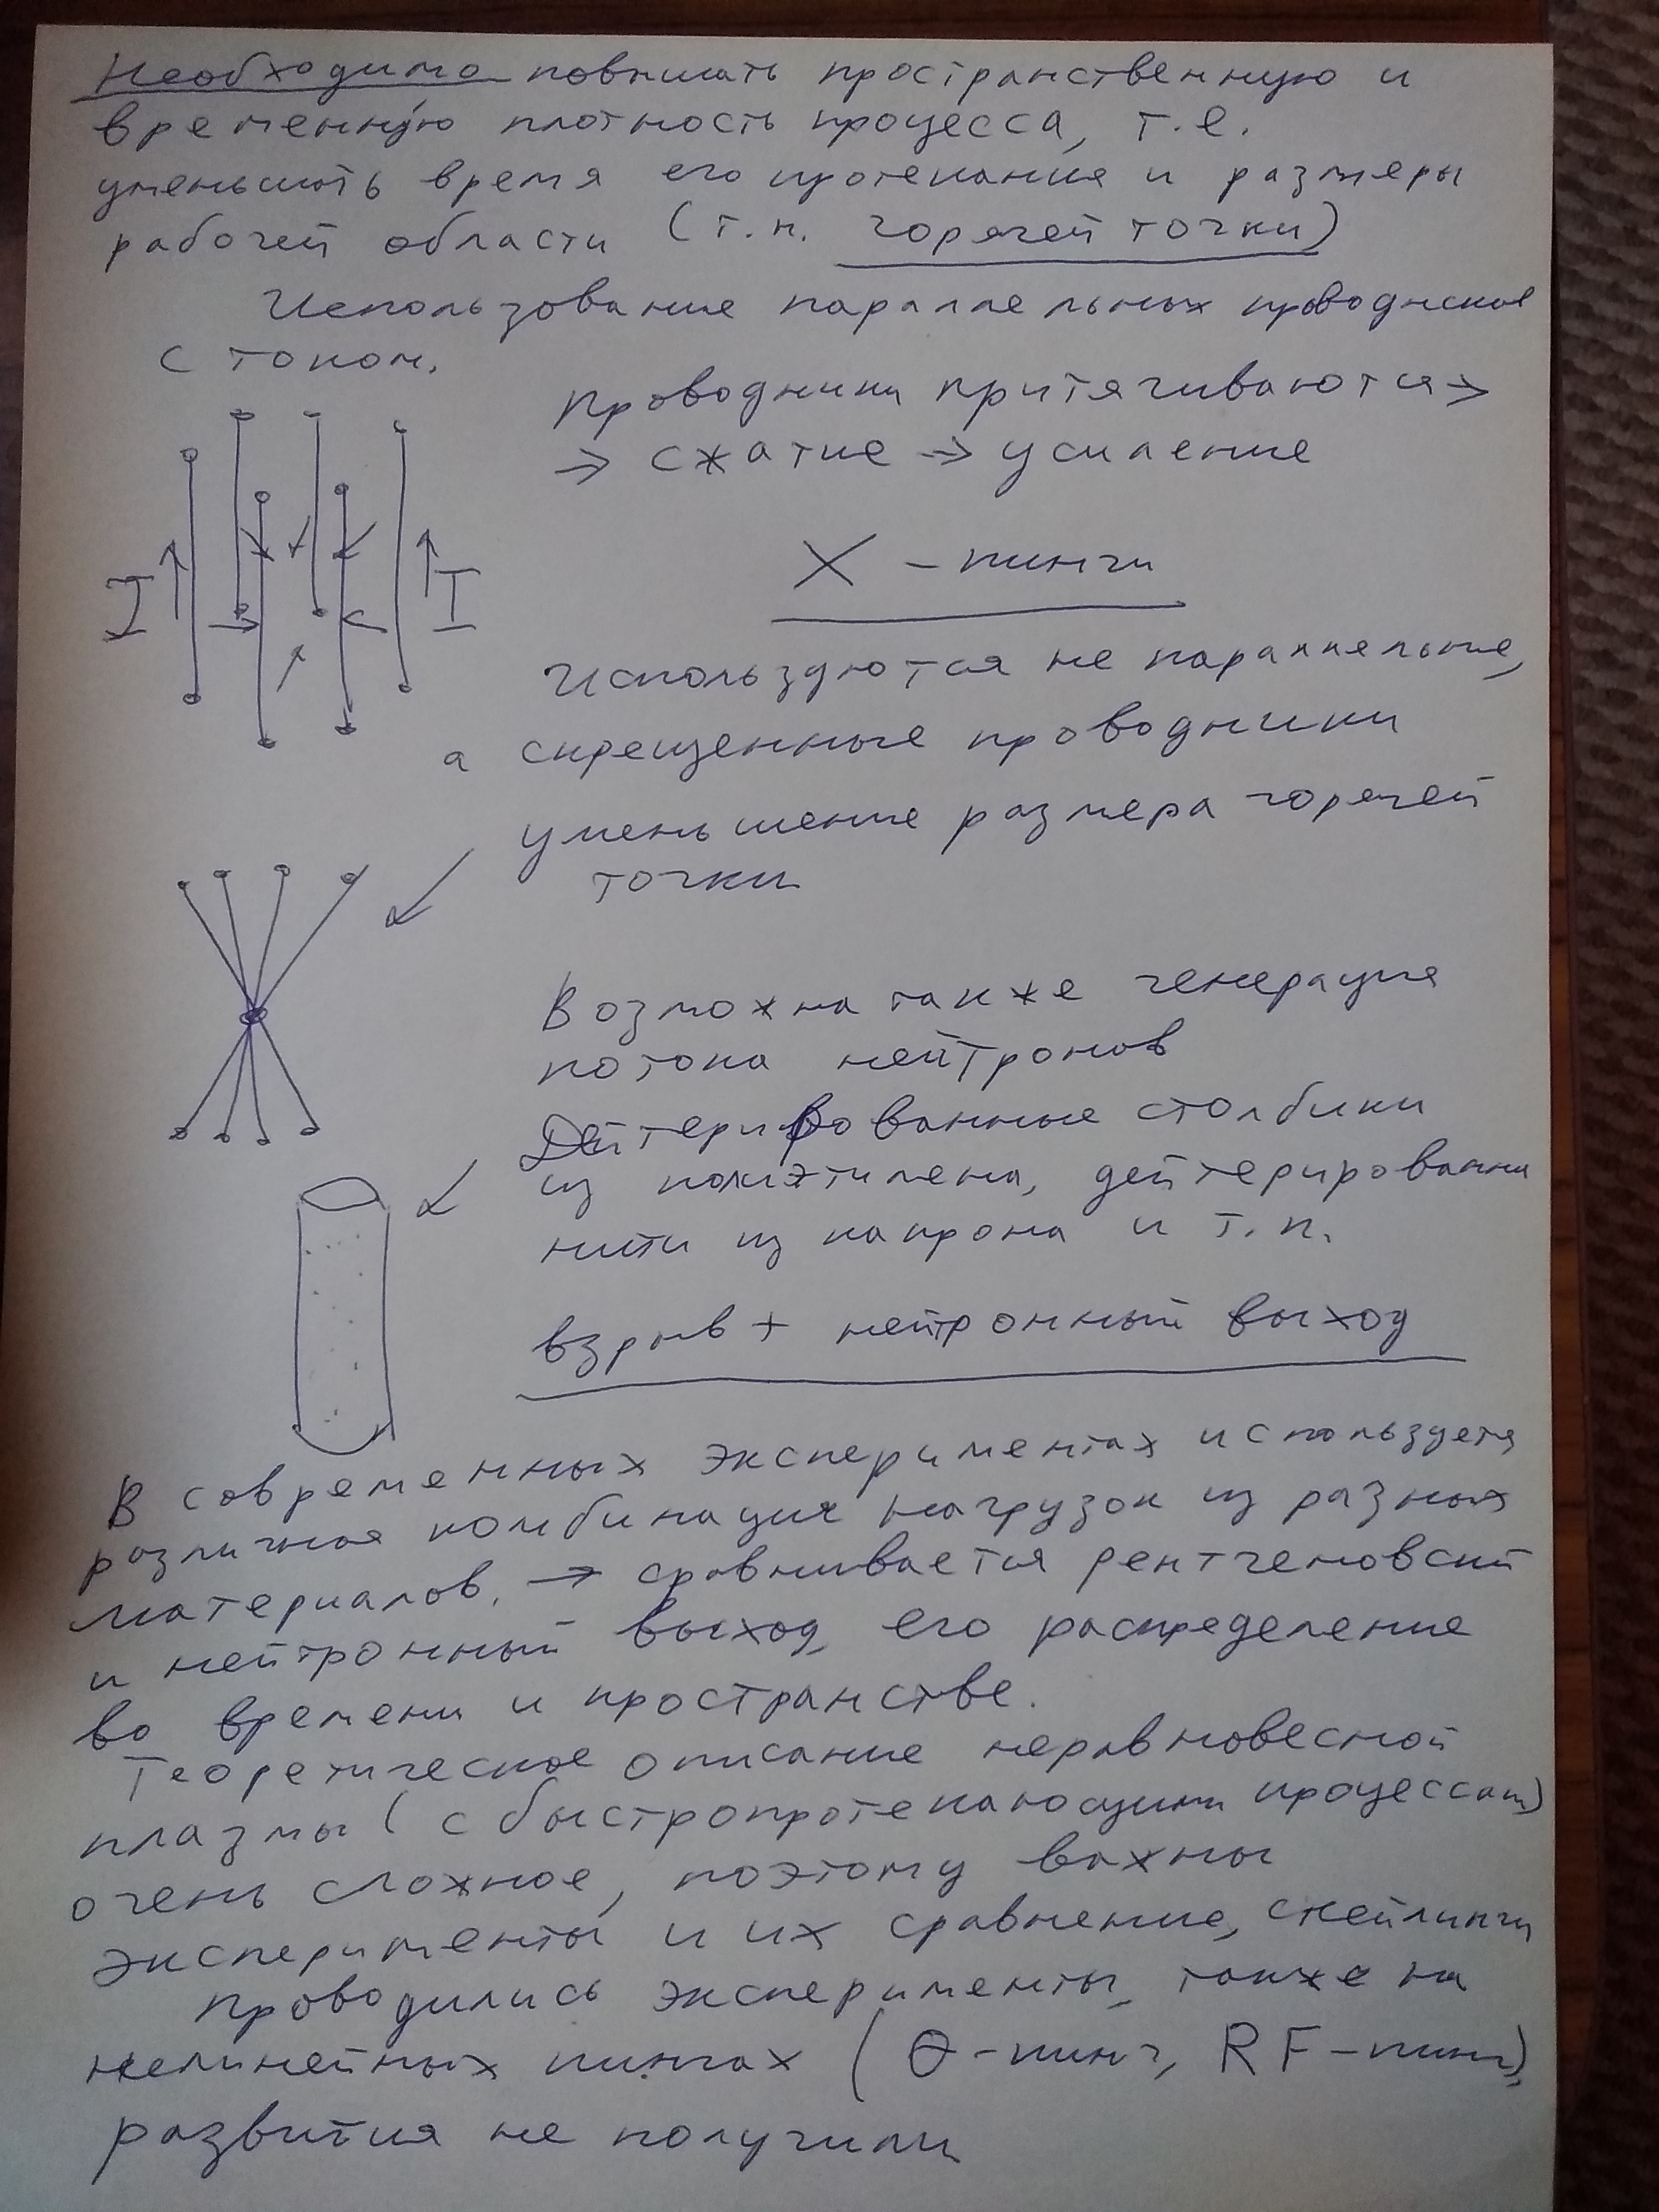 Необходимо повысить пространственную и
временную плотность процесса, т.е.
уменьшить время его протекания и размеры
рабочей области (т.н. горячей точки)
Использование параллельных проводников
с током.
Проводники притягиваются →
→ сжатие → усиление
I I
X – пинчи
Используются не параллельные,
а скрещенные проводники
уменьшение размера горячей
точки
Возможна также генерация
потока нейтронов
Дейтерированные столбики
из полиэтилена, дейтерированные
нити из капрона и т.п.
взрыв + нейтронный выход
В современных экспериментах используется
различная комбинация нагрузок из разных
материалов. → сравнивается рентгеновский
и нейтронный выход, его распределение
во времени и пространстве.
Теоретическое описание неравновесной
плазмы (с быстропротекающими процессами)
очень сложное, поэтому важны
эксперименты и их сравнение, скейлинги
Проводились эксперименты также на
нелинейных пинчах (θ-пинч, RF-пинч),
развития не получили